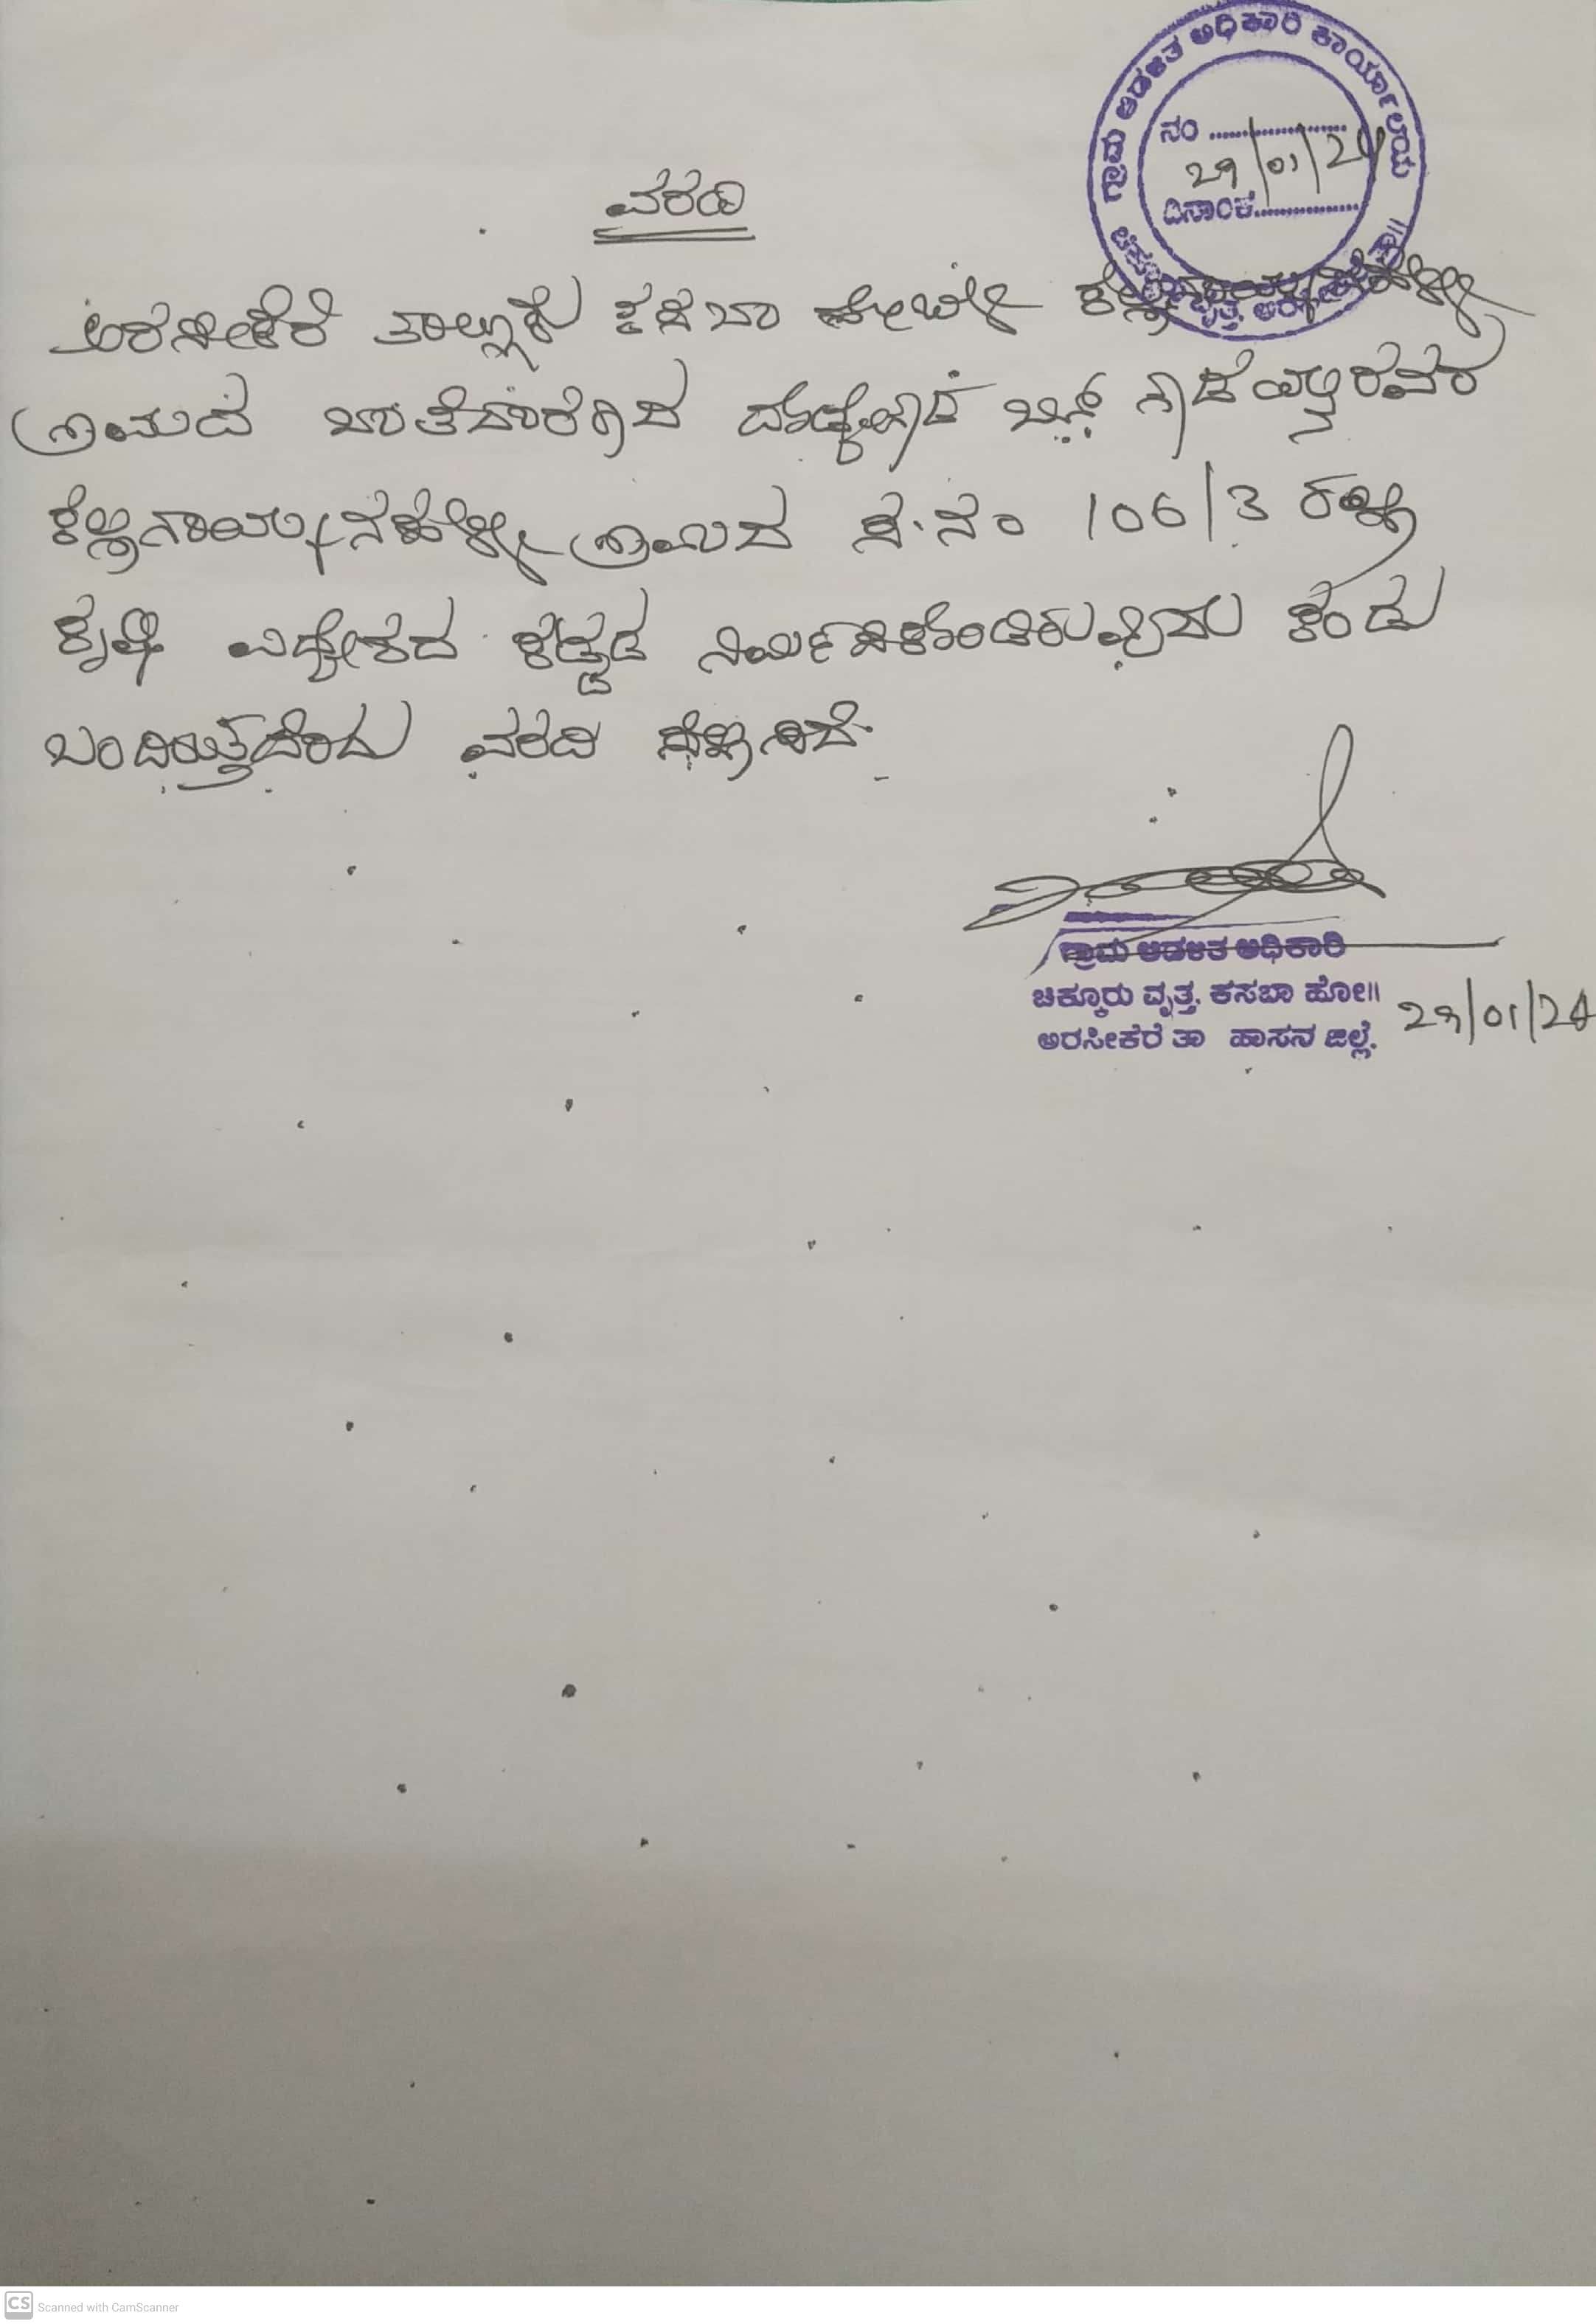 ಗ್ರಾಮ ಆಡಳಿತ ಅಧಿಕಾರಿ ಕಾರ್ಯಾಲಯ
ನಂ ....................
29/01/24
ದಿನಾಂಕ..................
ವೃತ್ತ, ಅರಸೀಕೆರೆ
ವರದಿ
ಅರಸೀಕೆರೆ ತಾಲ್ಲೂಕು ಕಸಬಾ ಹೋಬಳಿ
ಗ್ರಾಮದ ಖಾತೆದಾರರಾದ ಬಿನ್
ಗ್ರಾಮದ ಸ.ನಂ 106/3 ರಲ್ಲಿ
ಕೃಷಿ ಕಟ್ಟಡ ನಿರ್ಮಿಸಿಕೊಂಡಿರುವುದು ಕಂಡು
ಬಂದಿರುತ್ತದೆಂದು ವರದಿ ಸಲ್ಲಿಸಿದೆ.
ಗ್ರಾಮ ಆಡಳಿತ ಅಧಿಕಾರಿ
ಚಿಕ್ಕೂರು ವೃತ್ತ, ಕಸಬಾ ಹೋ||
ಅರಸೀಕೆರೆ ತಾ ಹಾಸನ ಜಿಲ್ಲೆ. 29/01/24
CS Scanned with CamScanner